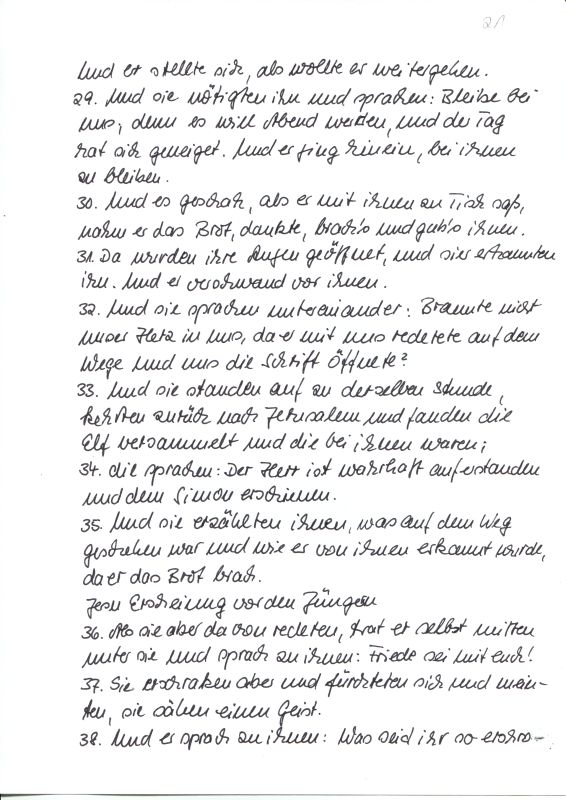 21
Und er stellte sich, als wollte er weitergehen.
29. Und sie nötigten ihn und sprachen: Bleibe bei
uns; denn es will Abend werden, und der Tag
hat sich geneiget. Und er ging hinein, bei ihnen
zu bleiben.
30. Und es geschah, als er mit ihnen zu Tisch saß,
nahm er das Brot, dankte, brach's und gab's ihnen.
31. Da wurden ihre Augen geöffnet, und sie erkannten
ihn. Und er verschwand vor ihnen.
32. Und sie sprachen untereinander: Brannte nicht
unser Herz in uns, da er mit uns redetete auf dem
Wege und uns die Schrift öffnete?
33. Und sie standen auf zu derselben Stunde,
kehrten zurück nach Jerusalem und fanden die
Elf versammelt und die bei ihnen waren;
34. die sprachen: Der Herr ist wahrhaft auferstanden
und dem Simon erschienen.
35. Und sie erzählten ihnen, was auf dem Weg
geschehen war und wie er von ihnen erkannt wurde,
da er das Brot brach.
Jesu Erscheinung vor den Jüngern
36. Als sie aber davon redeten, trat er selbst mitten
unter sie und sprach zu ihnen: Friede sei mit euch!
37. Sie erschraken aber und fürchteten sich und mein-
ten, sie sähen einen Geist.
38. Und er sprach zu ihnen: Was seid ihr so erschro-